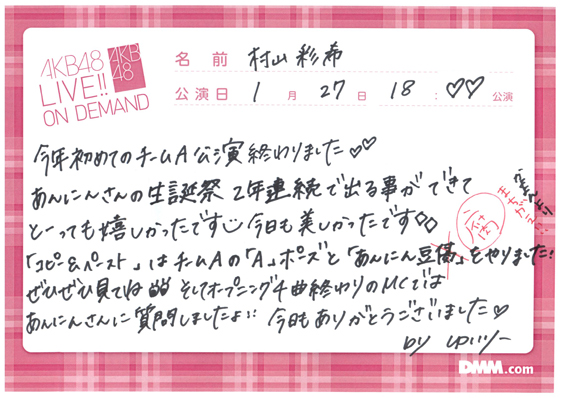 AKB48
LIVE!!
ON DEMAND
AKB
48
名前 村山彩希
公演日 1月27日 18:♡♡公演
今年初めてのチームA公演終わりました♡♡
あんにんさんの生誕祭2年連続で出る事ができて
とーっても嬉しかったです 今日も美しかったです◇◇
腐
「コピー&ペースト」はチームAの「A」ポーズと「あんにん豆腐」をやりました!
ぜひぜひ見てね そしてオープニング4曲終わりのMCでは
あんにんさんに質問しましたよ!! 今日もありがとうございました♡
by ゆいりー
DMM.com